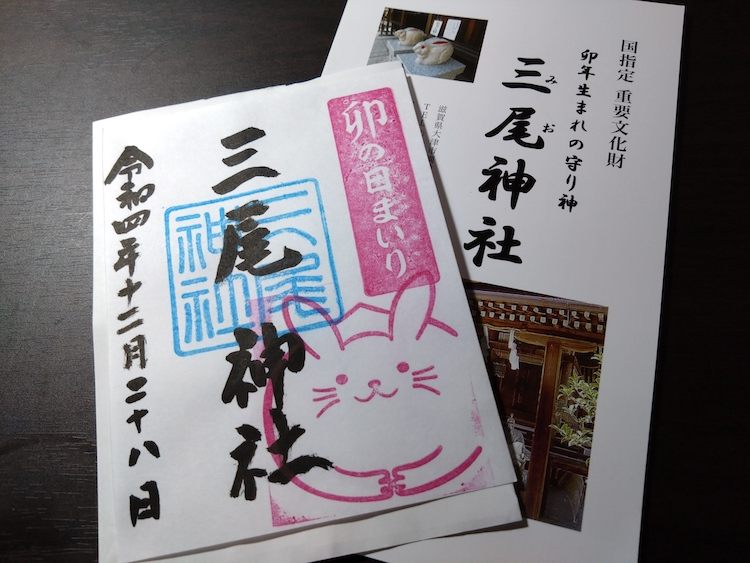 国指定 重要文化財
卯年生まれの守り神
三尾神社
みお
滋賀県大津
卯の日まいり
三尾神社
三尾
神社
令和四年十二月二十八日